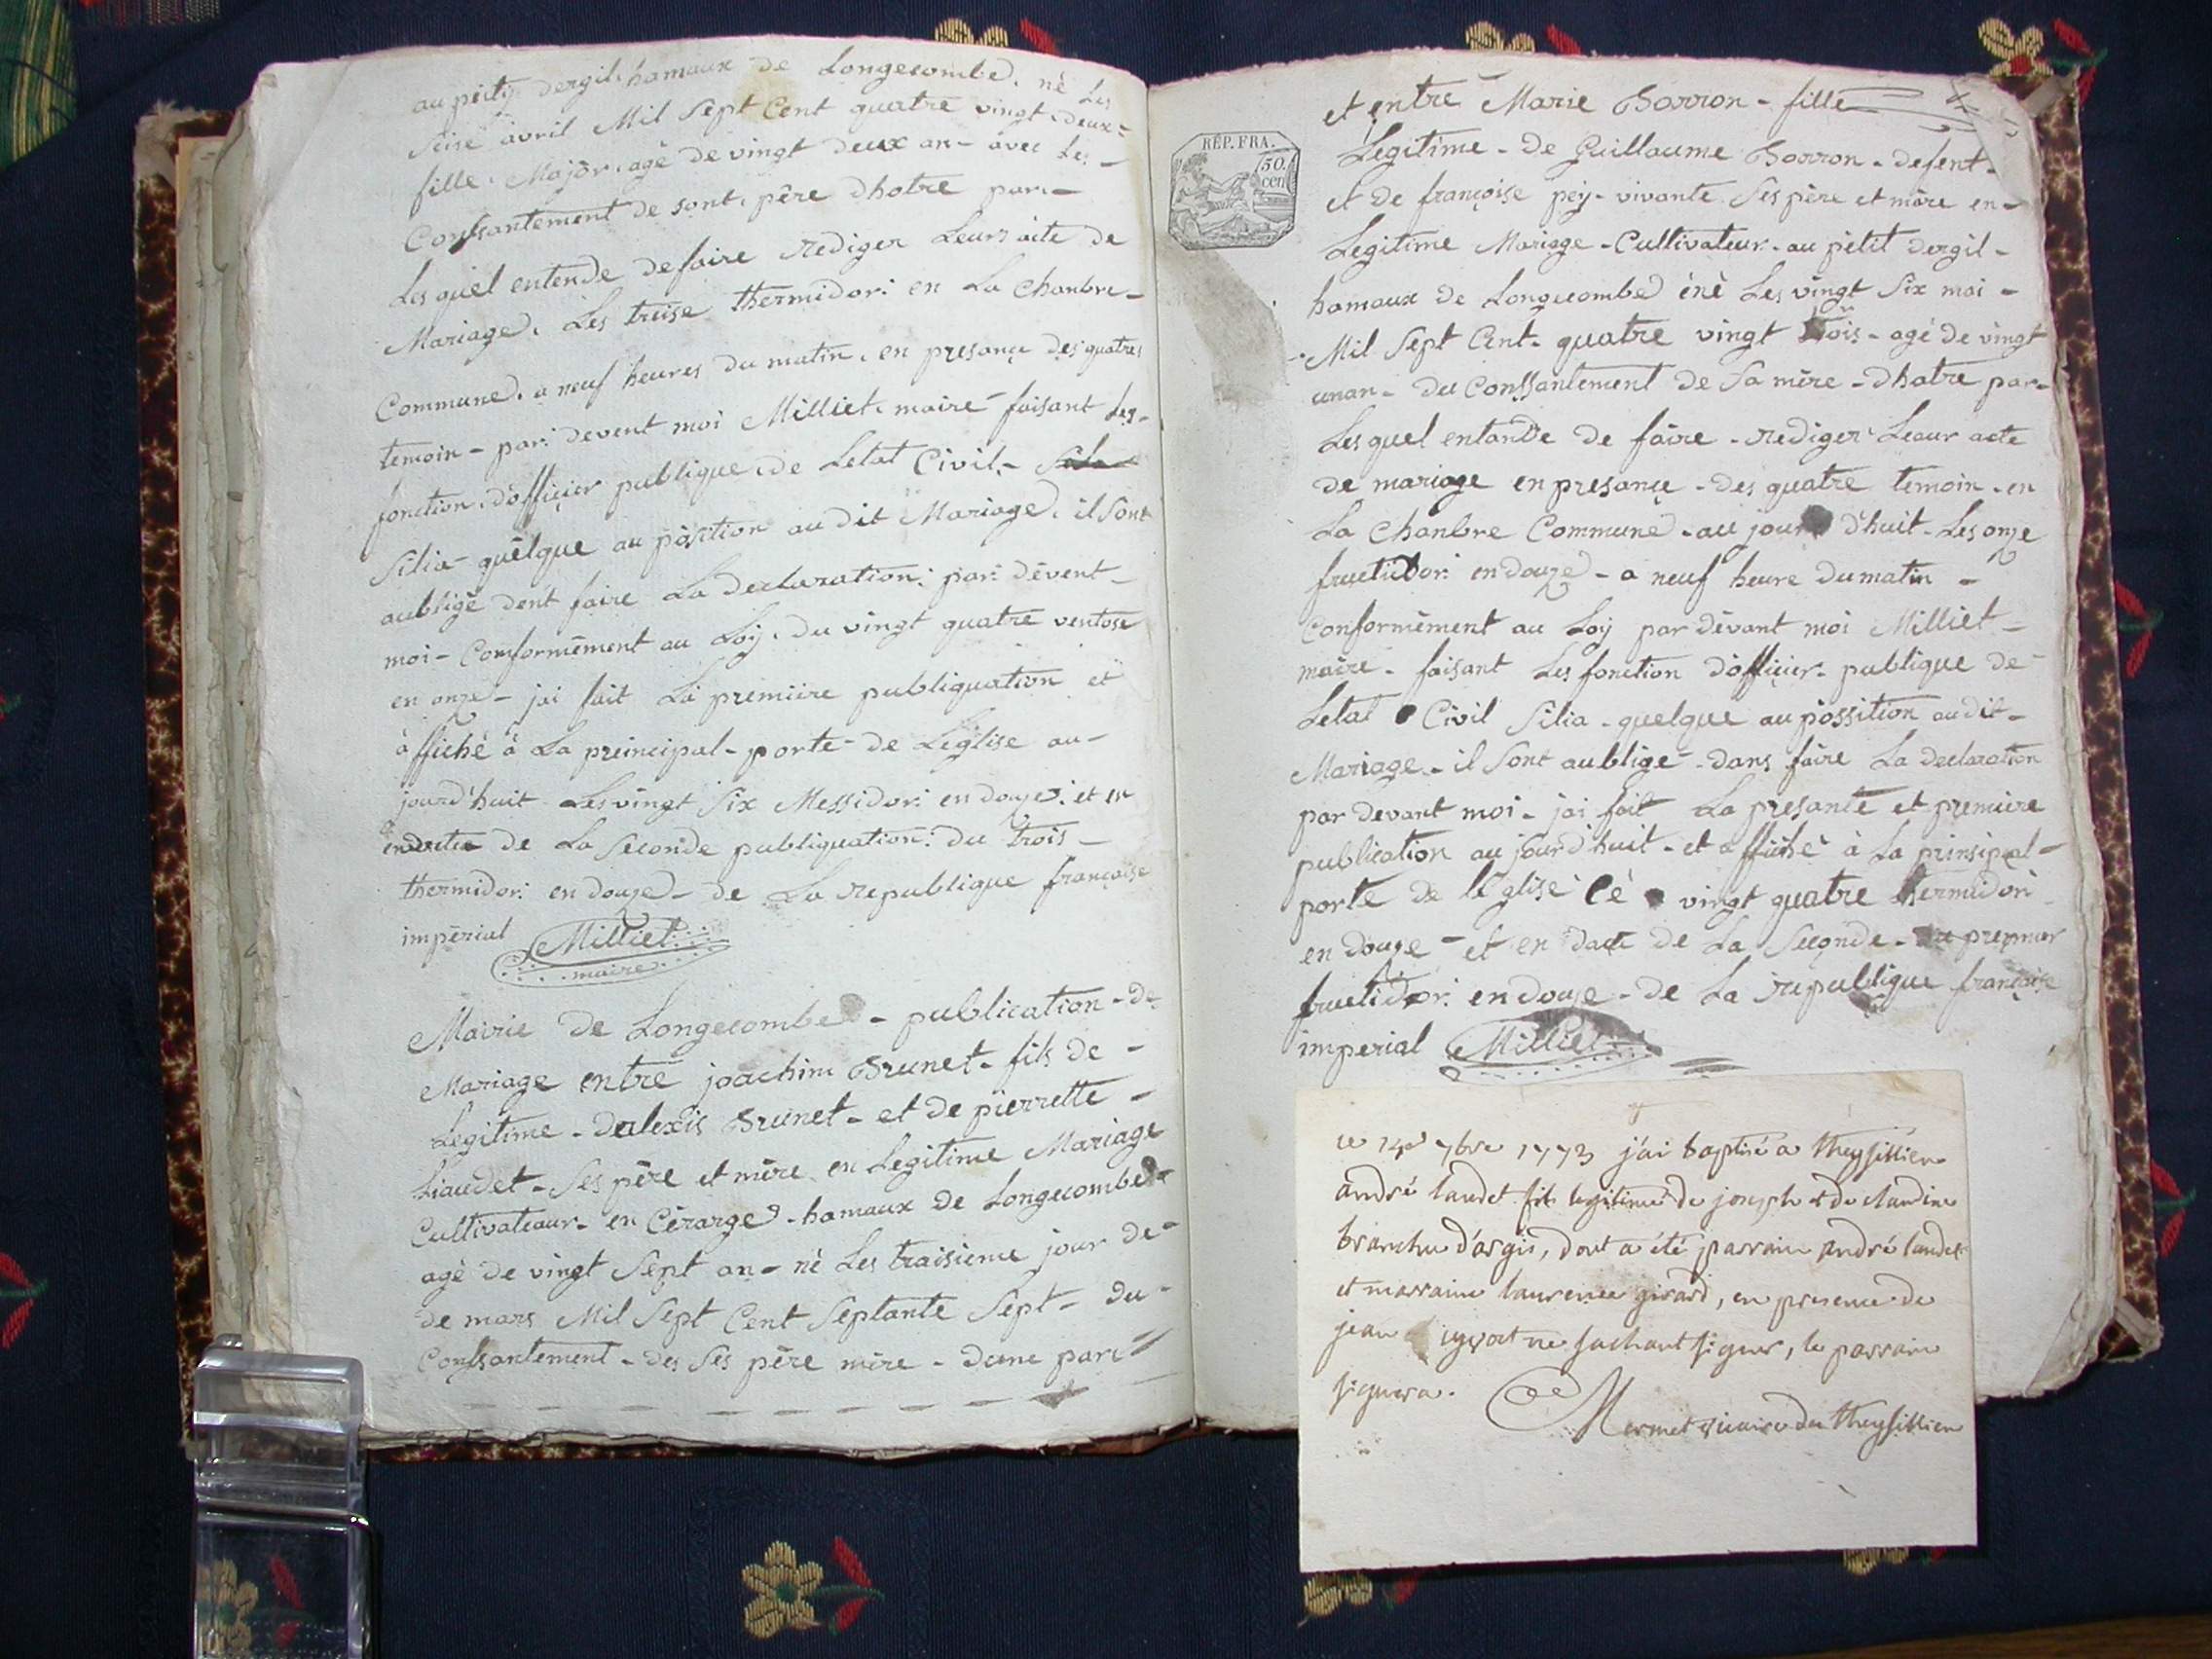 au petit dergil. hamaux de Longecombe. né Les
seise avril Mil Sept Cent quatre vingt deux -
fille. Major. agé de vingt deux an - avec Les -
Conssantement de sont. père dhotre par -
Les quel entende defaire rediger Leurs acte de
Mariage. Les treise thermidor: en La Chanbre -
Commune. a neuf heures du matin. en presançe des quatres
temoin - par: devent moi Milliet. maire - faisant Les -
fonction. dofficier publique. de Letat Civil -
Silia - quêlque au pôsition au dit Mariage. il Sont
aubligé dent faire La declaration: par: dévent -
moi - Comformément au Loij. du vingt quatre ventose
en onze - jai fait La premiire publiquation et
àffiché à La preincipal - porte de Léglise au -
jourd'huit Les vingt Six Messidor: en douze: et en
de La Seconde publiquation: du trois -
thermidor: en douze - de La republique française
impérial Milliet
maire
Mairie de Longecombe - publication - de
Mariage entre joachim Brunet - fils de -
Legitime - dalexis Brunet - et de pierrette -
Liaudet - Ses père et mère en Legitime Mariage
Cultivateaur - en Cérarge - hamaux de Longecombe -
agé de vingt Sept an - né Les traisieme jour de -
de mars Mil Sept Cent Septante Sept - du -
Conssantement - des Ses père mère - dune par
et entre Marie Borron - fille
Legitime - de Guillaume Borron - defent -
et de françoise pey - vivante Ses père et mère en -
Legitime Mariage - Cultivateur - au petit dergil -
hamaux de Longecombe éné Les vingt Six mai -
Mil Sept Cent - quatre vingt trois - agé de vingt
unan - du Conssantement de Sa mère - dhatre par -
Les quel entande de faire - rediger Leaur acte
de mariage en presançe - des quatre temoin - en
La Chanbre Commune - au jour d'huit - Les onze
fructidor: en douze - a neuf heure du matin -
Conformément au Loij par dévant moi Milliet -
maire - faisant Les fonction dofficier - publique de -
Letat Civil Silia - quelque au possition au dit -
Mariage - il Sont aubligé - dans faire La declaration
par devant moi - jai fait La presante et premiire
publication au jourd'huit - et affiché à La prinsipal -
porte de léglise Cé vingt quatre thermidor
en douze - et en date de La Seconde - du premier
fructidor: en douze - de La republique française
imperial Milliet
RÉP. FRA.
50.
cen
ce 14e 7bre 1773 j'ai baptisé a theysillieu
andré laudet fils legitime de joseph et de claudine
branche d'argis, dont a été parrain andré laudet
et marraine laurence girard, en presence de
jean ne sachant signer, le parrain
signera.
Mermet vicaire de theysillieu